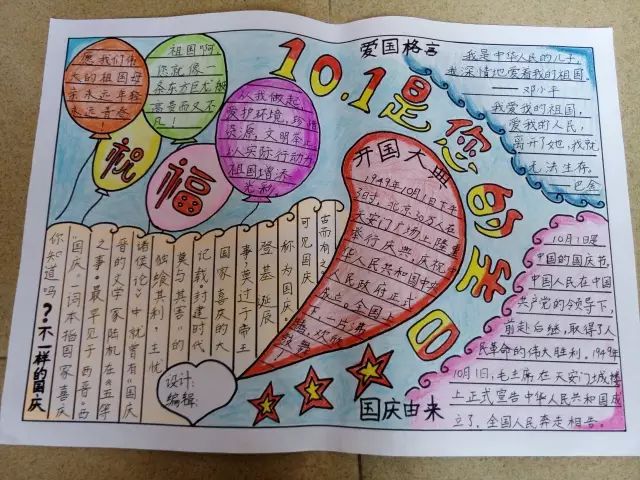 10.1是您的生日
愿我们伟
大的祖国母
亲永远年轻
永远青春
!
祖国啊,
您就像一
条东方巨龙,
高贵而又不
凡!
从我做起,
爱护环境,珍惜
资源,文明举止,
以实际行动为
祖国增添
光彩。
祝
福
爱国格言
我是中华人民的儿子,
我深情地爱着我的祖国。
——邓小平
我爱我的祖国,
爱我的人民,
离开了她,我就
无法生存。
——巴金
开国大典
1949年10月1日下午
3时,北京30万人在
天安门广场上隆重
举行庆典,庆祝中
华人民共和国中央
人民政府正式
成立。全国上
下一片养
腾,欢欣
鼓舞
10月1日是
中国的国庆节,
中国人民在中国
共产党的领导下,
前赴后继,取得了人
民革命的伟大胜利。1949年
10月1日,毛主席在天安门城楼
上正式宣告中华人民共和国成
立了,全国人民奔走相告。
国庆由来
不一样的国庆
你知道吗?
“国庆”一词本指国家喜庆
之事,最早见于西晋。西
晋的文学家陆机在《五等
诸侯论》中就曾有“国庆
独飨其利,主忧
莫与其害”的
记载,封建时代
国家喜庆的大
事莫过于帝王
登基、诞辰
称为国庆,
可见国庆
古而有之。
设计:
编辑: